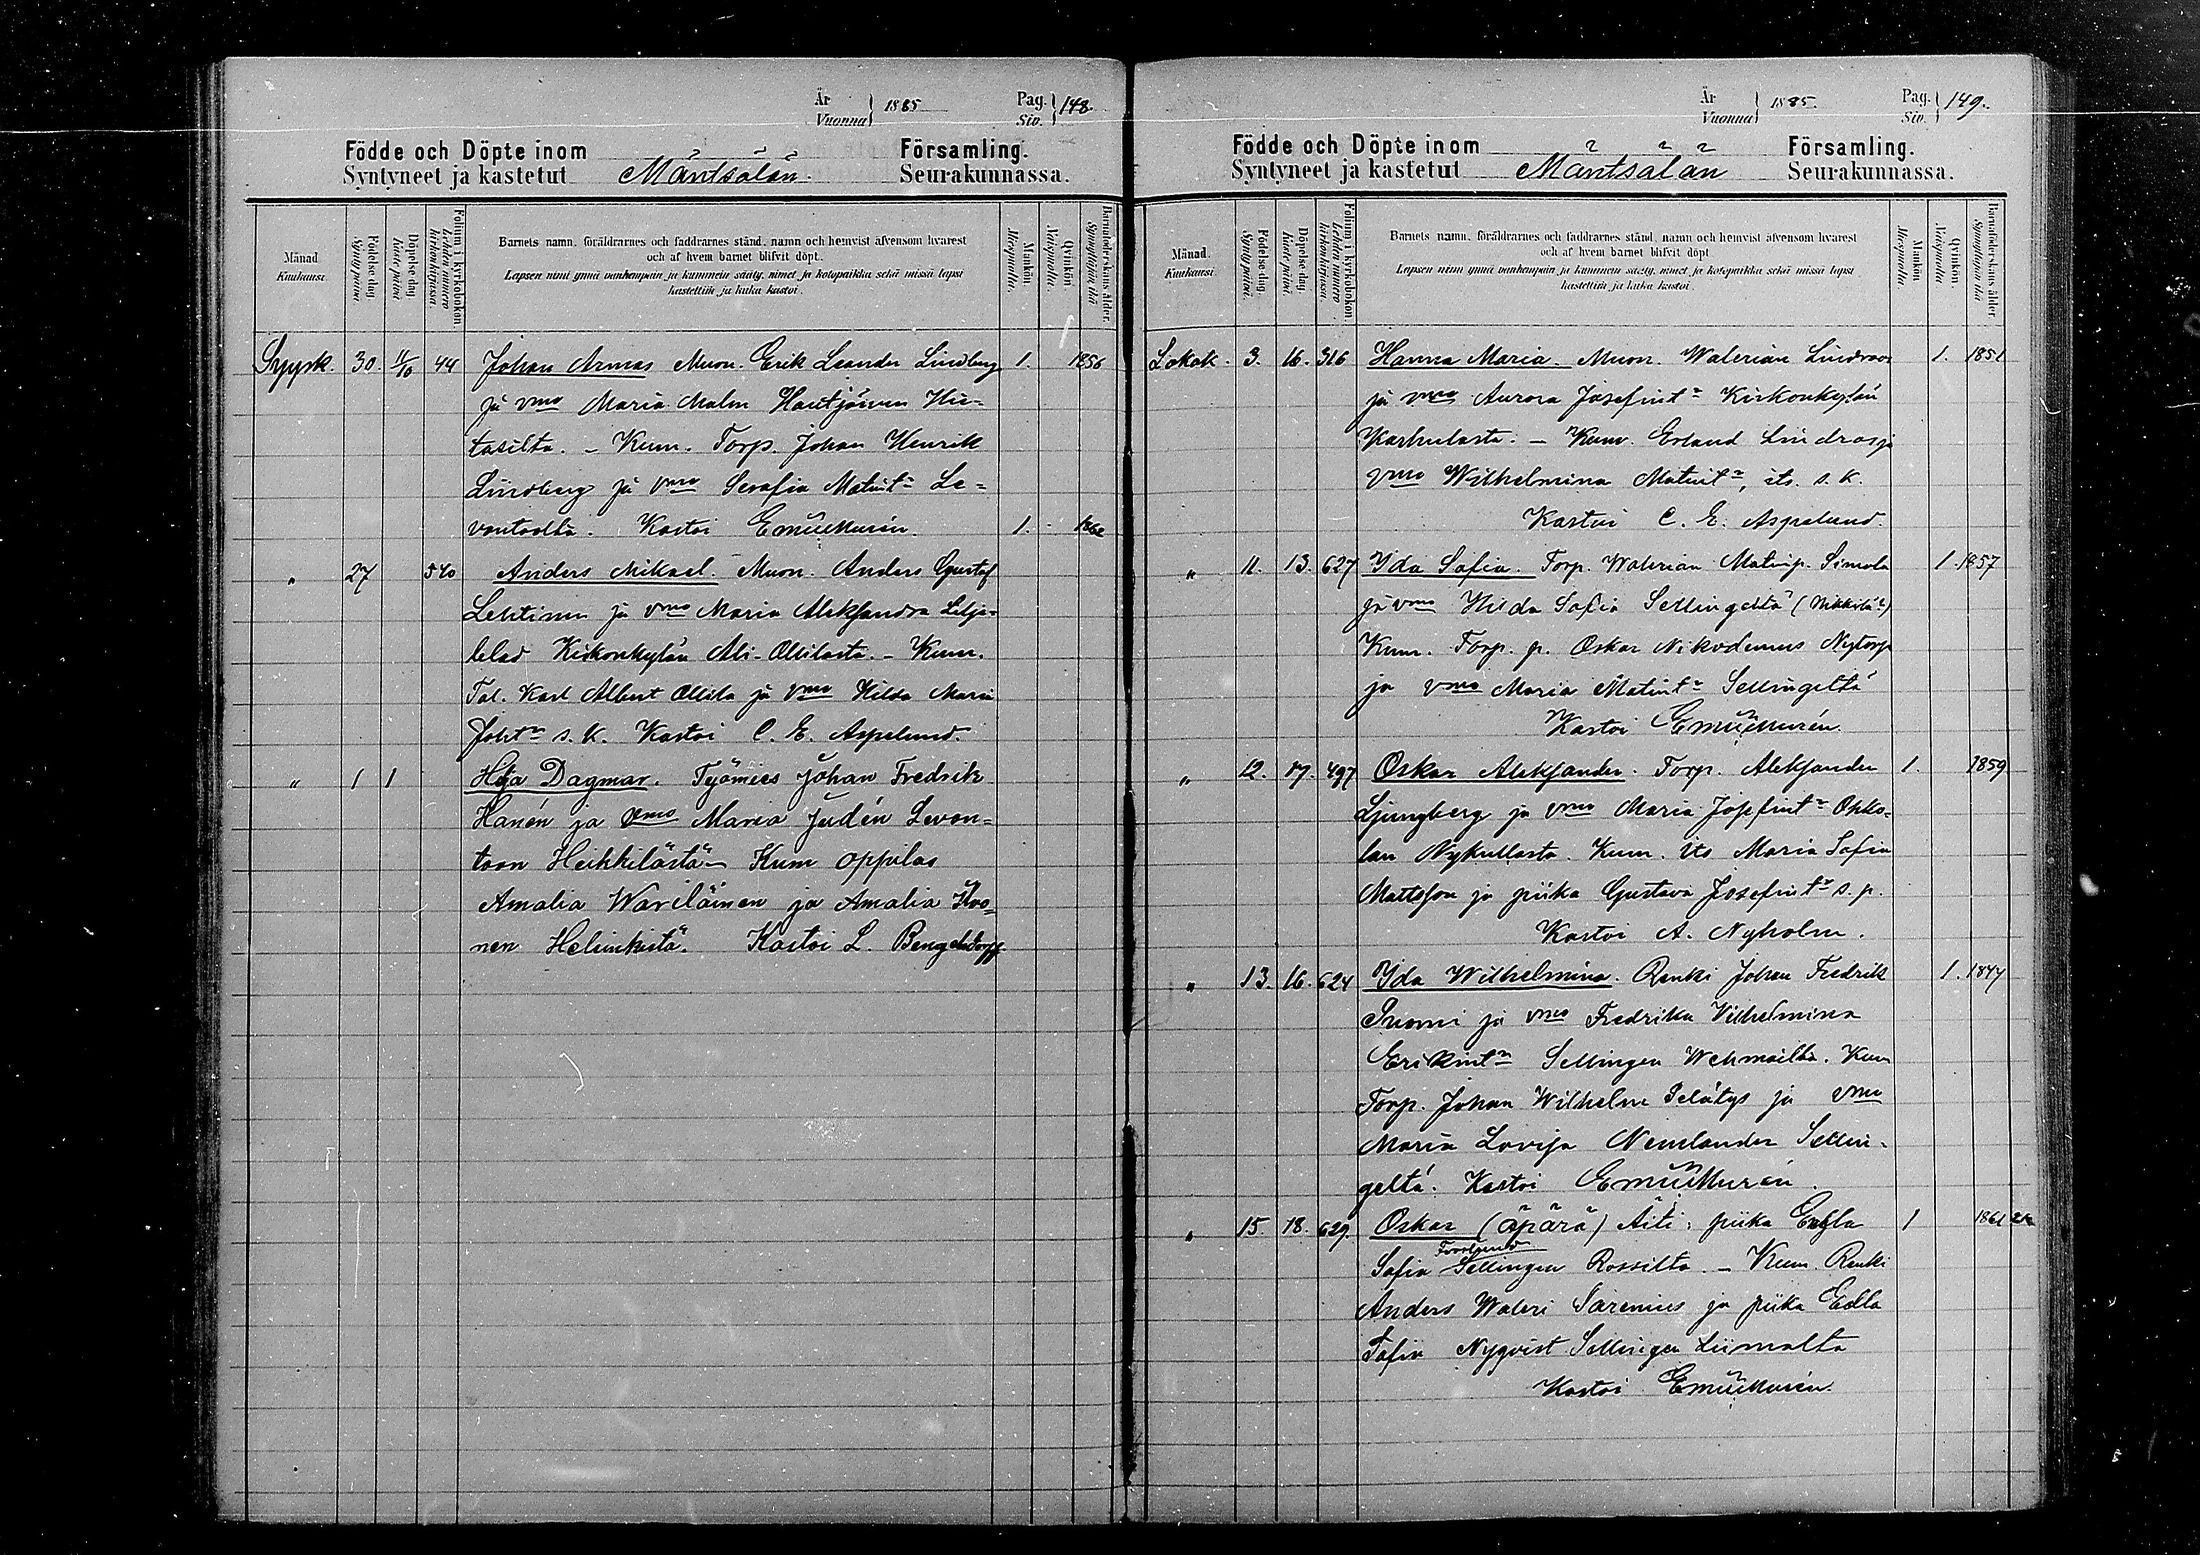 År
Vuonna } 1885
Pag.
Siv. } 148.
Födde och Döpte inom
Syntyneet ja kastetut Mäntsälän Församling.
Seurakunnassa.
Månad.
Kuukausi.
Födelse dag.
Syntypäivä.
Döpelse dag
Kaste päivä
Folium i kyrkoboken
Lehden numero kirkonkirjassa.
Barnets namn, föräldrarnes och faddrarnes stånd, namn och hemvist äfvensom hvarest
och af hvem barnet blifvit döpt.
Lapsen nimi ynnä vanhempain ja kummein sääty, nimet ja kotopaikka sekä missä lapsi
kastettiin ja kuka kastoi.
Mankön
Miespuolia.
Qvinkön
Naispuolia.
Barnaföderskans ålder.
Synnyttäjän ikä
Syysk. 30. 11/10 44 Johan Armas Muon. Erik Leander Lindberg 1. 1856
ja vmo Maria Malm Hautjärven Hie-
tasilta. – Kum. Torp. Johan Henrik
Lindberg ja vmo Serafia Matint. Le-
vontaolta. Kastoi Emil Murén. 1.
" 27 540 Anders Mikael. Muon. Anders Gustaf
Lehtinen ja vmo Maria Aleksandra Lilje-
blad Kirkonkylän Ali-Ollilasta. – Kum.
Tal. Karl Albert Ollila ja vmo Hilda Maria
s. k. Kastoi C. E. Aspelund.
" 1 1 Dagmar. Työmies Johan Fredrik
Hanén ja vmo Maria Judén Levon-
toon Heikkilästä – Kum oppilas
Amalia Wariläinen ja Amalia
nen Helsinkistä. Kastoi L. Bengelsdorff
År
Vuonna } 1885.
Pag.
Siv. } 149.
Födde och Döpte inom
Syntyneet ja kastetut Mäntsälän Församling.
Seurakunnassa.
Månad.
Kuukausi.
Födelse dag.
Syntypäivä.
Döpelse dag
Kaste päivä.
Folium i kyrkoboken
Lehden numero kirkonkirjassa.
Barnets namn, föräldrarnes och faddrarnes stånd, namn och hemvist äfvensom hvarest
och af hvem barnet blifvit döpt.
Lapsen nimi ynnä vanhempain ja kummein sääty, nimet ja kotopaikka sekä missä lapsi
kastettiin ja kuka kastoi.
Mankön
Miespuolia.
Qvinkön.
Naispuolia
Barnaföderskans ålder.
Synnyttäjän ikä
Lokak. 3. 16. 316 Hanna Maria. Muon. Walerian Lindroos 1. 1851
ja vmo Aurora Josefint. Kirkonkylän
Karhulasta. – Kum. Erland Lindros ja
vmo Wilhelmina Matint., its. s. k.
Kastoi C. E. Aspelund.
" 11. 13. 627 Ida Sofia. Torp. Walerian Matinp. Simola 1. 1857
ja vmo Hilda Sofia Sellingeltä
Kum. Torp. p. Oskar Nikodemus Nytorp
ja vmo Maria Matint. Sellingeltä
Kastoi Emil Murén.
" 12. 17. 497 Oskar Aleksander. Torp. Aleksander 1. 1859
Ljungberg ja vmo Maria Josefint. Ohko-
lan Nykullasta. Kum. Its Maria Sofia
Mattsson ja piika Gustava Josefint. s. p.
Kastoi A. Nyholm.
" 13. 16. 624 Ida Wilhelmina. Renki Johan Fredrik 1. 1847
Suomi ja vmo Fredrika Vilhelmina
Erikint. Sellingen Wehmailta. Kum
Torp. Johan Wilhelm Selätys ja vmo
Maria Lovisa Nemlander Sellin-
geltä. Kastoi Emil Murén.
" 15. 18. 629. Oskar (äpärä) Äiti: piika 1 1861
Sofia Sellingen Rossilta. – Kum. Renki
Anders Waleri Sarenius ja piika Edla
Sofia Nyqvist Sellingen Liimalta
Kastoi Emil Murén.